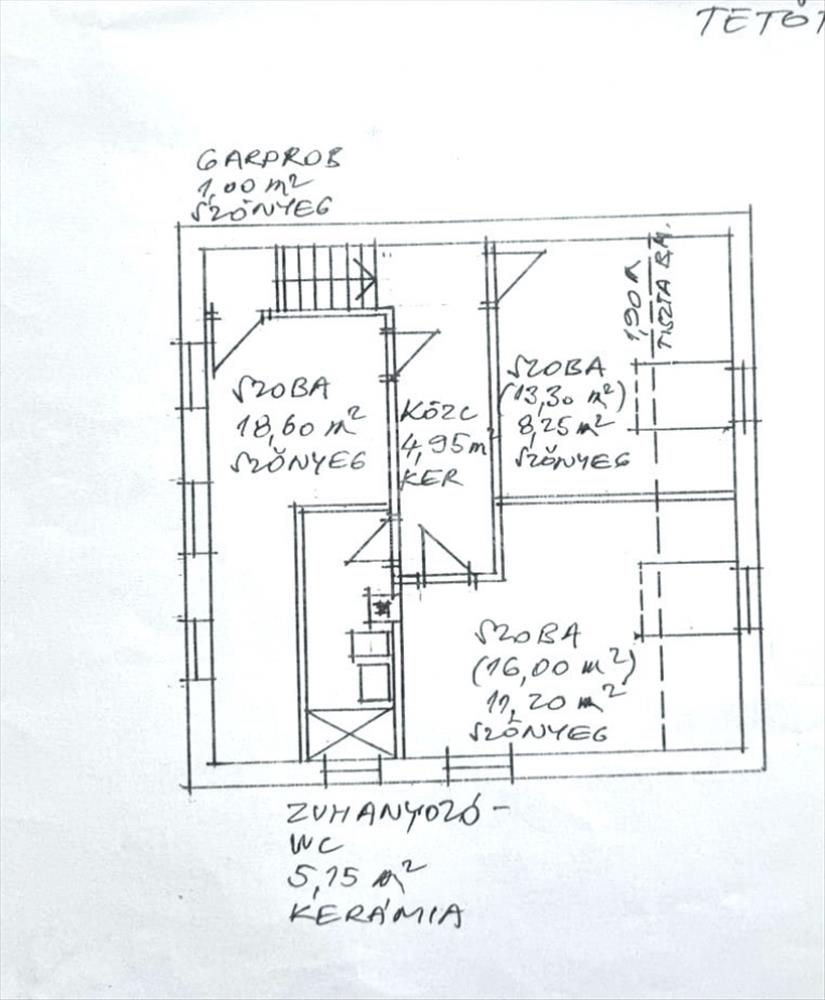 TETŐT
GARDROB
1,00 m²
SZŐNYEG
1,90 m
TISZTA B.M.
SZOBA
18,60 m²
SZŐNYEG
KÖZL
4,95 m²
KER
SZOBA
(13,30 m²)
8,25 m²
SZŐNYEG
SZOBA
(16,00 m²)
11,20 m²
SZŐNYEG
ZUHANYOZÓ-
WC
5,15 m²
KERÁMIA